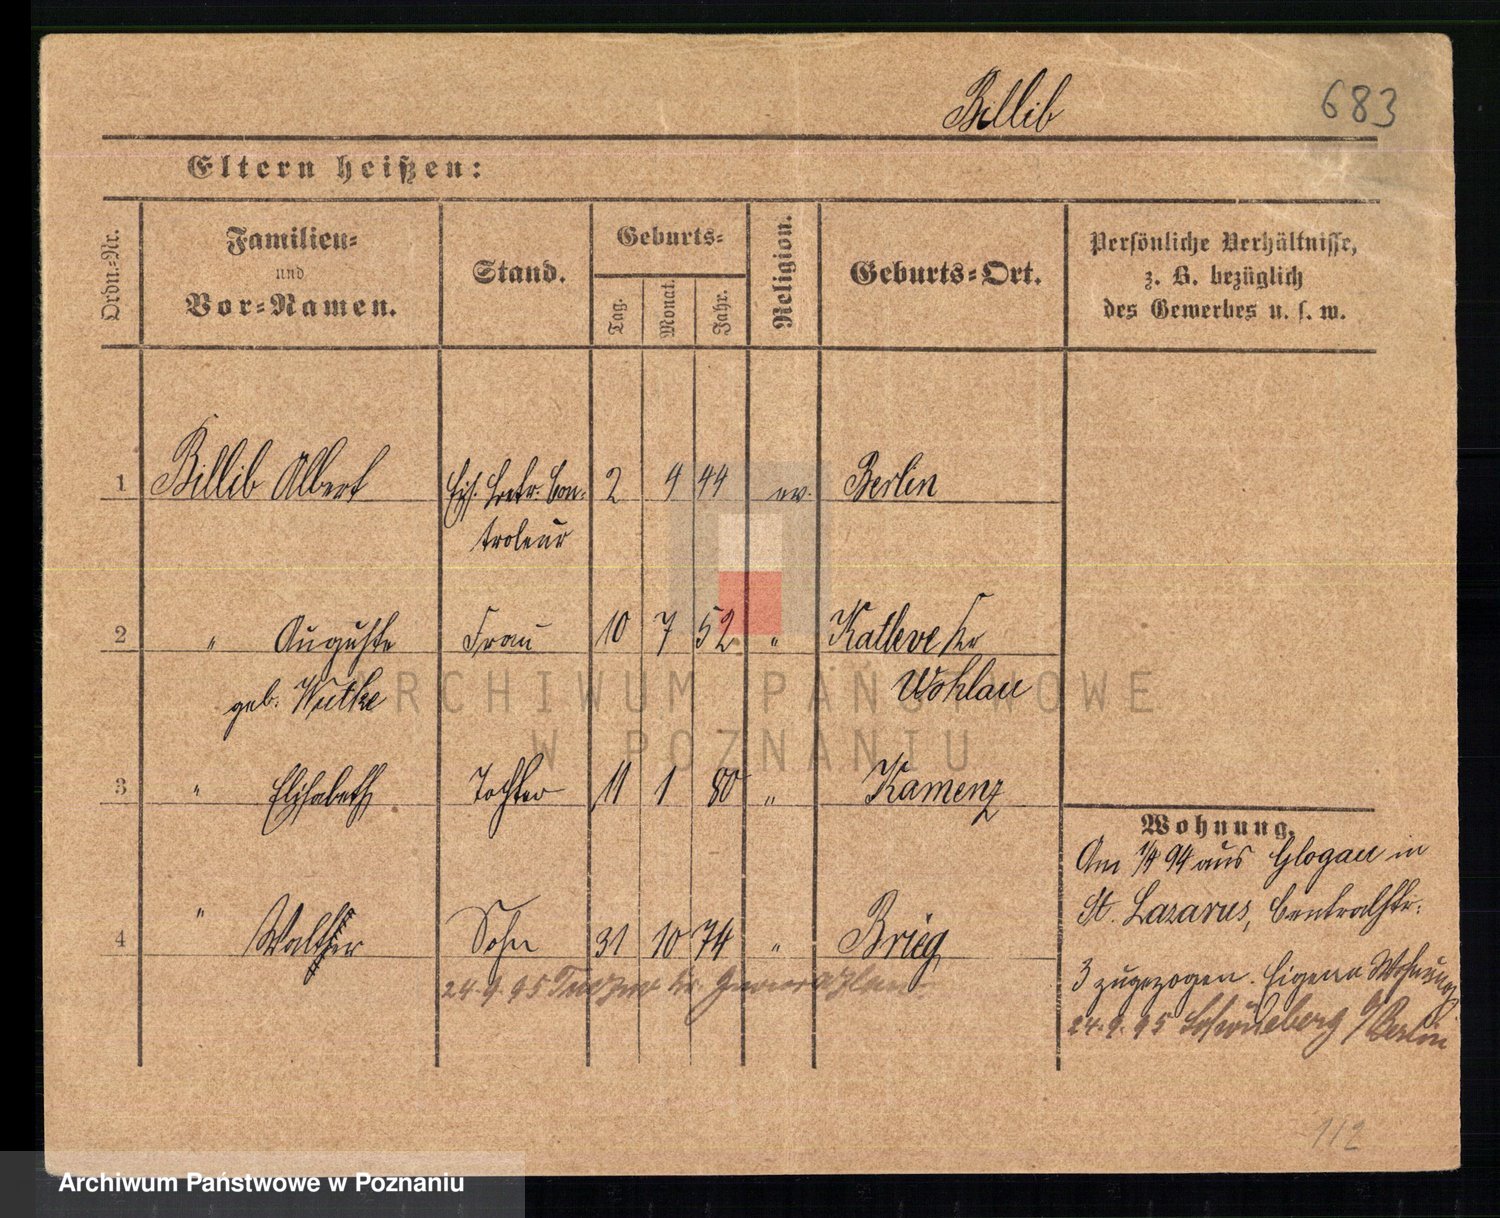 Billib 683
Eltern heißen:
Ordn.-Nr.
Familien- und Vor-Namen.
Stand.
Geburts-
Tag.
Monat.
Jahr.
Religion.
Geburts-Ort.
Persönliche Verhältnisse,
z. B. bezüglich
des Gewerbes u. s. w.
1 Billib Albert Eis. Betr. Con- 2 4 44 ev. Berlin
troleur
2 " Auguste Frau 10 7 52 " Kathewe Kr
geb. Wutke Wohlau
3 " Elisabeth Tochter 11 1 80 " Kamenz
4 " Walther Sohn 31 10 74 " Brieg
24.9.95
Wohnung.
Am 1/4 94 aus Glogau in
St. Lazarus, Centralstr.
3 zugezogen. Eigene Wohnung
24.9.95 Schöneberg b/Berlin
112
ARCHIWUM PAŃSTWOWE
W POZNANIU
Archiwum Państwowe w Poznaniu